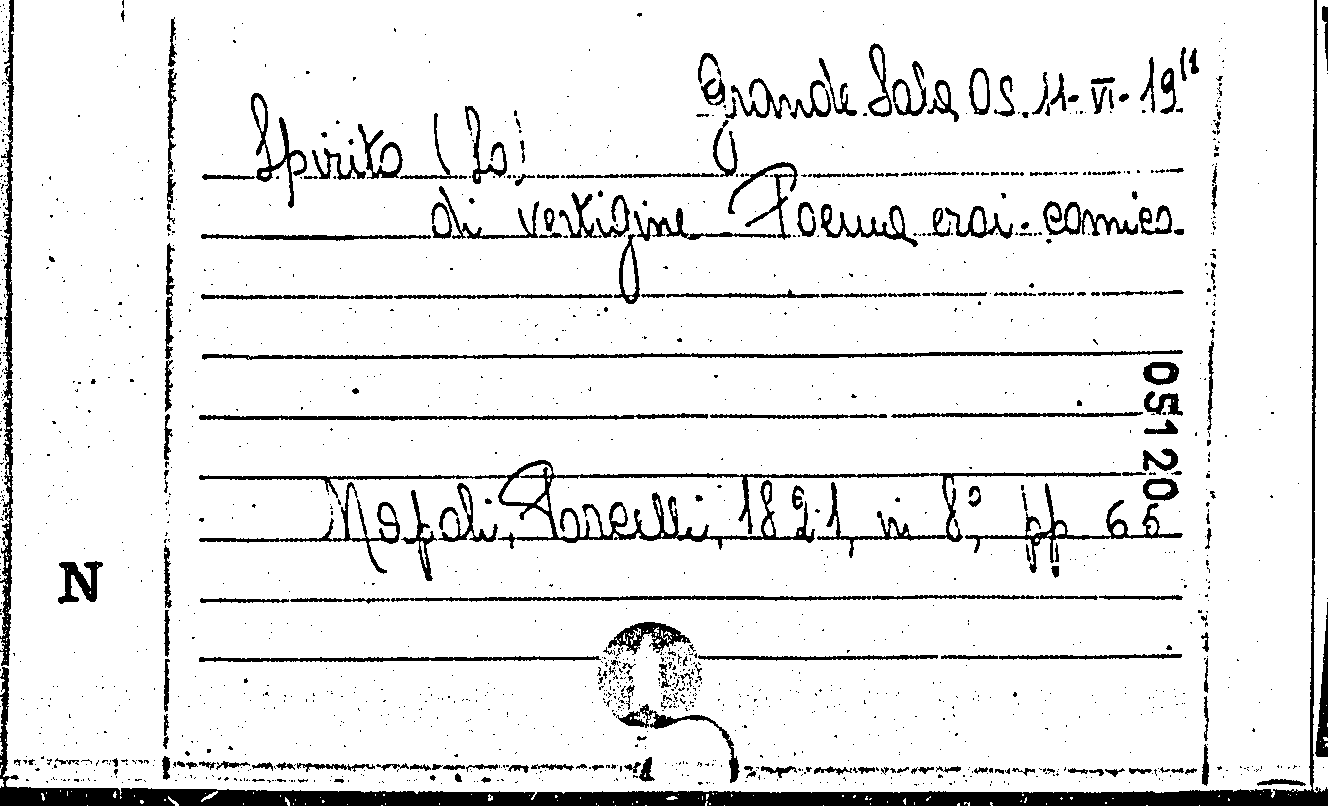 Grande Sala OS. 11-VI-19(1
Spirito (Lo)
di vertigine Poema eroi-comico
05120
Napoli, Porcelli, 1821, in 8°, pp 65
N